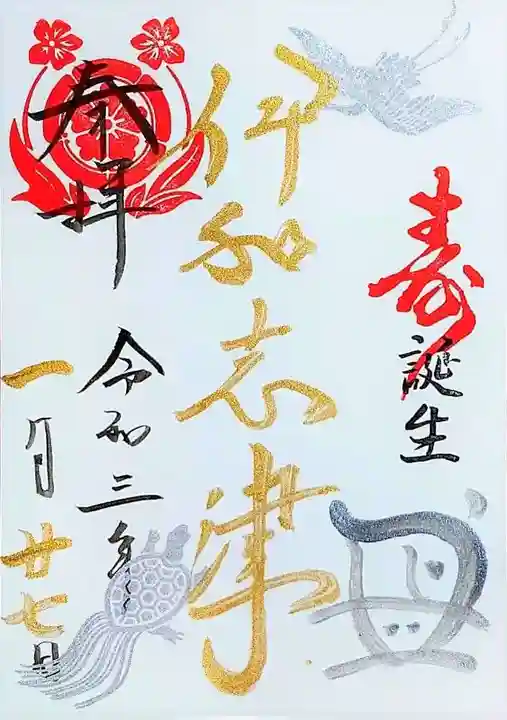 寿
誕生
丑
伊加志津
奉拝
令和三年
一月廿七日